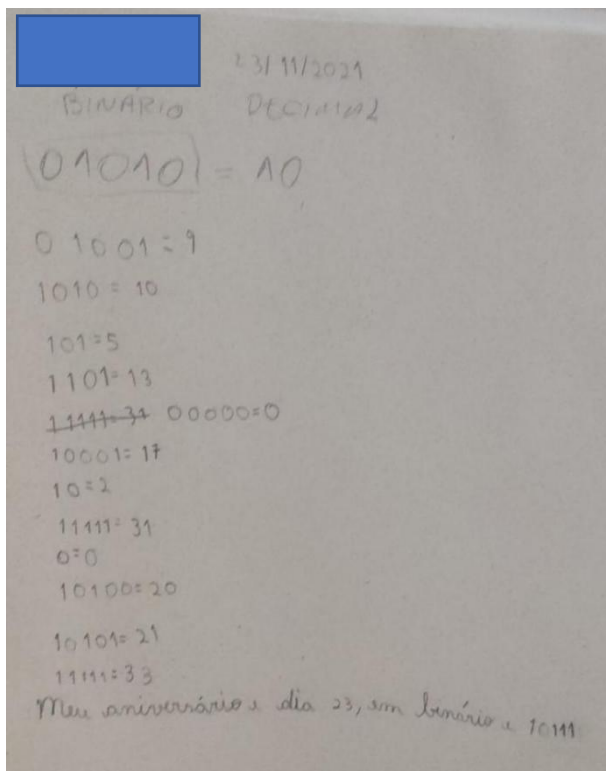 23/11/2021
BINÁRIO DECIMAL
01010 = 10
01001=9
1010=10
101=5
1101=13
11111=31 00000=0
10001=17
10=2
11111=31
0=0
10100=20
10101=21
11111=33
Meu aniversário é dia 23, em binário é 10111